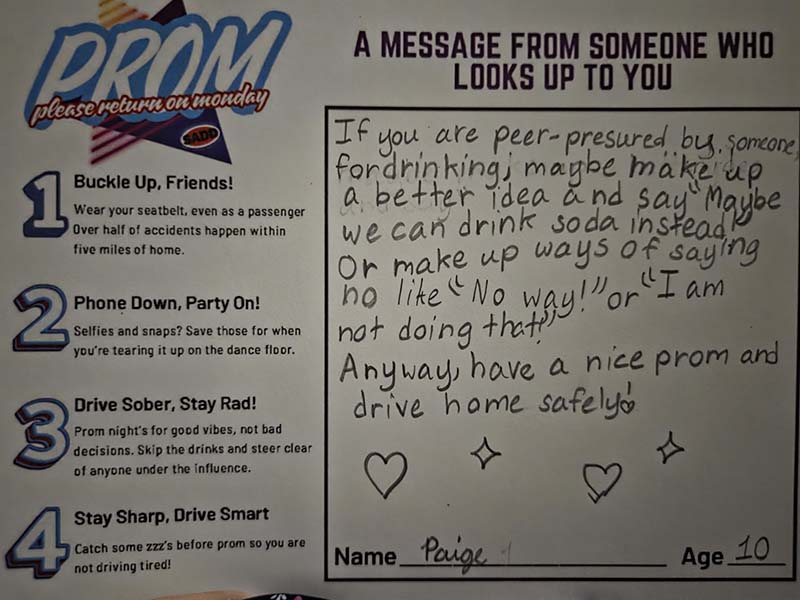 PROM
please return on monday
SADD
1
Buckle Up, Friends!
Wear your seatbelt, even as a passenger
Over half of accidents happen within
five miles of home.
2
Phone Down, Party On!
Selfies and snaps? Save those for when
you're tearing it up on the dance floor.
3
Drive Sober, Stay Rad!
Prom night's for good vibes, not bad
decisions. Skip the drinks and steer clear
of anyone under the influence.
4
Stay Sharp, Drive Smart
Catch some zzz's before prom so you are
not driving tired!
A MESSAGE FROM SOMEONE WHO
LOOKS UP TO YOU
If you are peer-presured by someone,
for drinking, maybe make up
a better idea and say "Maybe
we can drink soda instead!"
Or make up ways of saying
no like "No way!" or "I am
not doing that!"
Anyway, have a nice prom and
drive home safely!
Name Paige Age 10